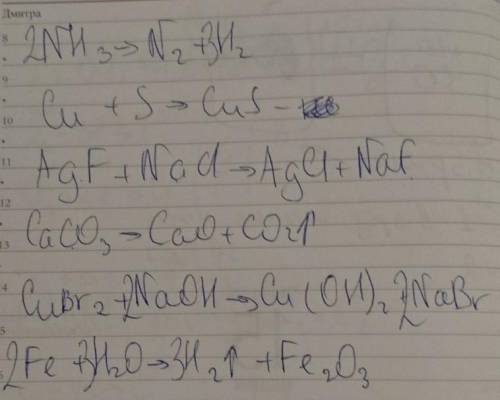 Дмитра
8
2NH₃→N₂+3H₂
9
10
Cu + S → CuS -
11
AgF + NaCl → AgCl + NaF
12
13
CaCO₃ → CaO + CO₂↑
4
CuBr₂ + 2NaOH → Cu(OH)₂ + 2NaBr
5
2Fe + 3H₂O → 3H₂↑ + Fe₂O₃